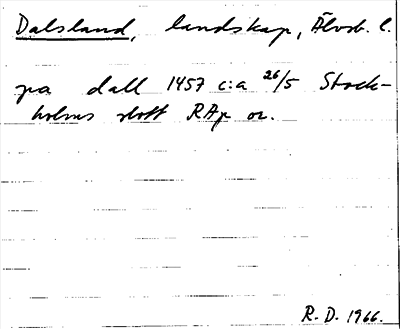 Dalsland, landskap, Älvsb. l.
pa dall 1457 c:a 26/5 Stock-
holms slott RAp or.
R. D. 1966.